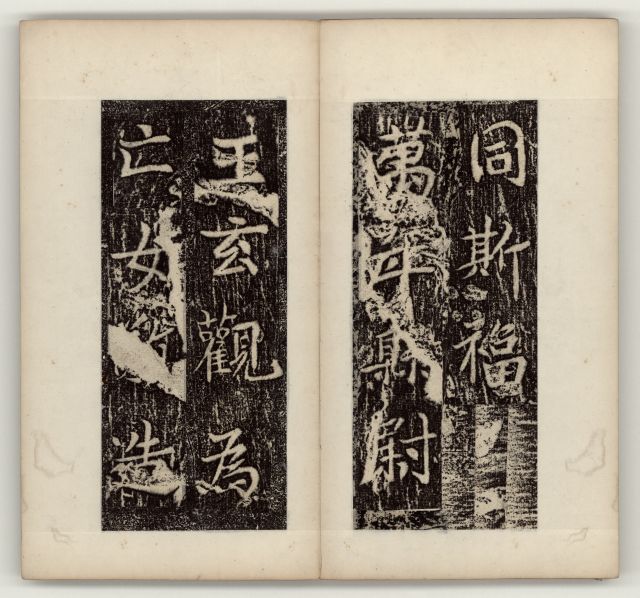 同斯福
萬年縣尉
王玄觀為
亡女造